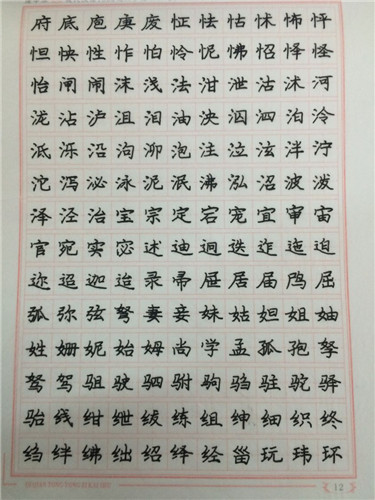 府底庖庚废怔怯怙怵怖怦
怛怏性怍怕怜怩怫怊怿怪
怡闸闹沫浅法泔泄沽沭河
泷沾泸沮泪油泱泅泗泊泠
泜泺沿泃泖泡注泣泫泮泞
沱泻泌泳泥泯沸泓沼波泼
泽泾治宝宗定宕宠宜审宙
官宛实宓述迪迥迭迮迤迫
迩迢迦迨录帚屉居届鸤屈
弧弥弦弩妻妾妹姑妲姐妯
姓姗妮始姆尚学孟孤孢孥
驽驾驵驶驷驸驹驺驻驼驿
骀线绀绁绂练组绅细织终
绉绊绋绌绍绎经甾玩玮环
12